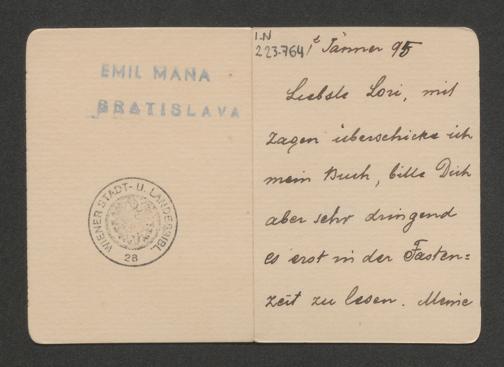 EMIL MAŇA
BRATISLAVA
WIENER STADT- U. LANDESBIBL.
28
I.N
223.764
1t Jänner 95
Liebste Lori, mit
Zagen überschicke ich
mein Buch, bitte Dich
aber sehr dringend
es erst in der Fasten=
zeit zu lesen. Meine